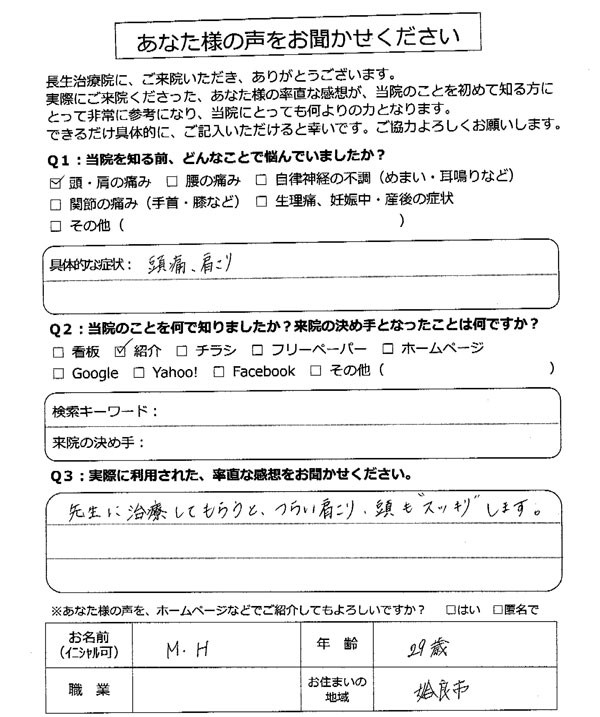 あなた様の声をお聞かせください
長生治療院に、ご来院いただき、ありがとうございます。
実際にご来院くださった、あなた様の率直な感想が、当院のことを初めて知る方に
とって非常に参考になり、当院にとっても何よりの力となります。
できるだけ具体的に、ご記入いただけると幸いです。ご協力よろしくお願いします。
Q1：当院を知る前、どんなことで悩んでいましたか？
☑ 頭・肩の痛み □ 腰の痛み □ 自律神経の不調（めまい・耳鳴りなど）
□ 関節の痛み（手首・膝など） □ 生理痛、妊娠中・産後の症状
□ その他（ ）
具体的な症状： 頭痛、肩こり
Q2：当院のことを何で知りましたか？来院の決め手となったことは何ですか？
□ 看板 ☑ 紹介 □ チラシ □ フリーペーパー □ ホームページ
□ Google □ Yahoo! □ Facebook □ その他（ ）
検索キーワード：
来院の決め手：
Q3：実際に利用された、率直な感想をお聞かせください。
先生に治療してもらうと、つらい肩こり、頭も〝スッキリ〟します。
※あなた様の声を、ホームページなどでご紹介してもよろしいですか？ □はい □匿名で
お名前（ｲﾆｼｬﾙ可） M.H 年 齢 29歳
職 業 お住まいの地域 姶良市